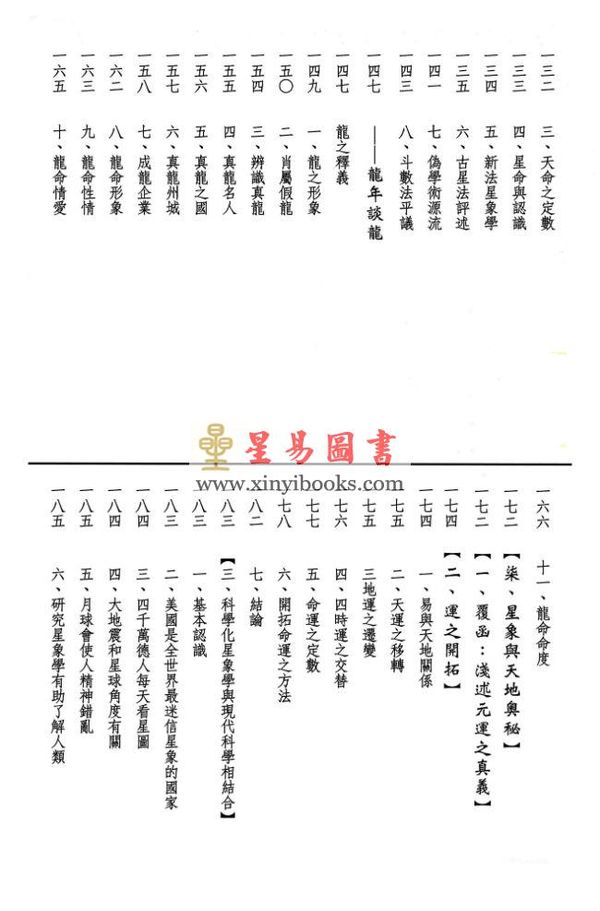 一三二 三、天命之定數
一三三 四、星命與認識
一三四 五、新法星象學
一三五 六、古星法評述
一四一 七、偽學術源流
一四三 八、斗數法平議
一四七 ——龍年談龍
一四七 龍之釋義
一四九 一、龍之形象
一五〇 二、肖屬假龍
一五四 三、辨識真龍
一五五 四、真龍名人
一五六 五、真龍之國
一五七 六、真龍州城
一五八 七、成龍企業
一六二 八、龍命形象
一六三 九、龍命性情
一六五 十、龍命情愛
星易圖書
www.xinyibooks.com
一六六 十一、龍命命度
一七二 【柒、星象與天地奧秘】
一七二 【一、覆函：淺述元運之真義】
一七四 【二、運之開拓】
一七四 一、易與天地關係
一七五 二、天運之移轉
一七五 三地運之遷變
一七六 四、四時運之交替
一七七 五、命運之定數
一七八 六、開拓命運之方法
一八二 七、結論
一八三 【三、科學化星象學與現代科學相結合】
一八三 一、基本認識
一八三 二、美國是全世界最迷信星象的國家
一八四 三、四千萬德人每天看星圖
一八四 四、大地震和星球角度有關
一八五 五、月球會使人精神錯亂
一八五 六、研究星象學有助了解人類